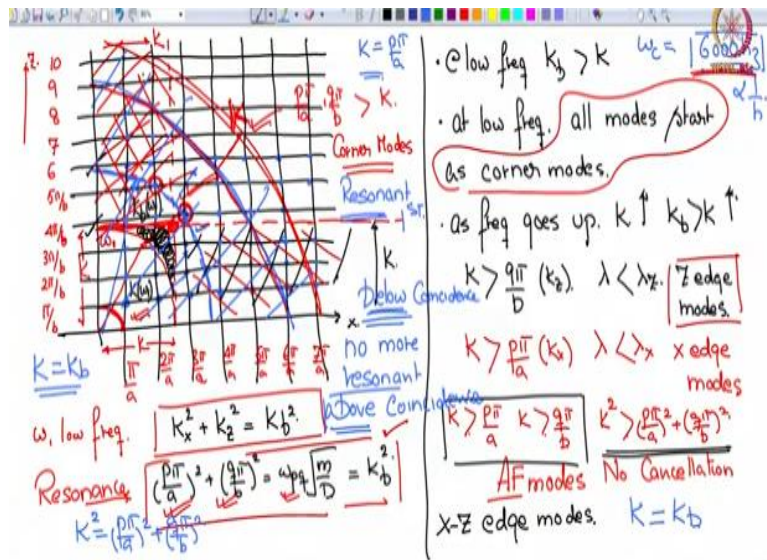 z
10
9
8
7
6
5π/b
4π/b
3π/b
2π/b
π/b
K₁
K
K_b(ω)
K(ω)
ω₁
K
K
x
π/a
2π/a
3π/a
4π/a
5π/a
6π/a
7π/a
K = pπ/a
pπ/a, qπ/b > K.
Corner Modes
Resonant
K.
Below Coincidence
no more
resonant
above Coincidence
K = K_b
ω, low freq.
K_x² + K_z² = K_b².
Resonance
(pπ/a)² + (qπ/b)² = ω_pq √(m/D) = K_b².
K² = (pπ/a)² + (qπ/b)²
• @ low freq K_b > K
ω_c =
∝ 1/h
• at low freq. all modes start
as corner modes.
• as freq goes up. K ↑ K_b > K ↑
K > qπ/b (K_z). λ < λ_z. Z edge
modes.
K > pπ/a (K_x) λ < λ_x x edge
modes
K > pπ/a K > qπ/b K² > (pπ/a)² + (qπ/b)²
AF modes No Cancellation
X-Z edge modes. K = K_b